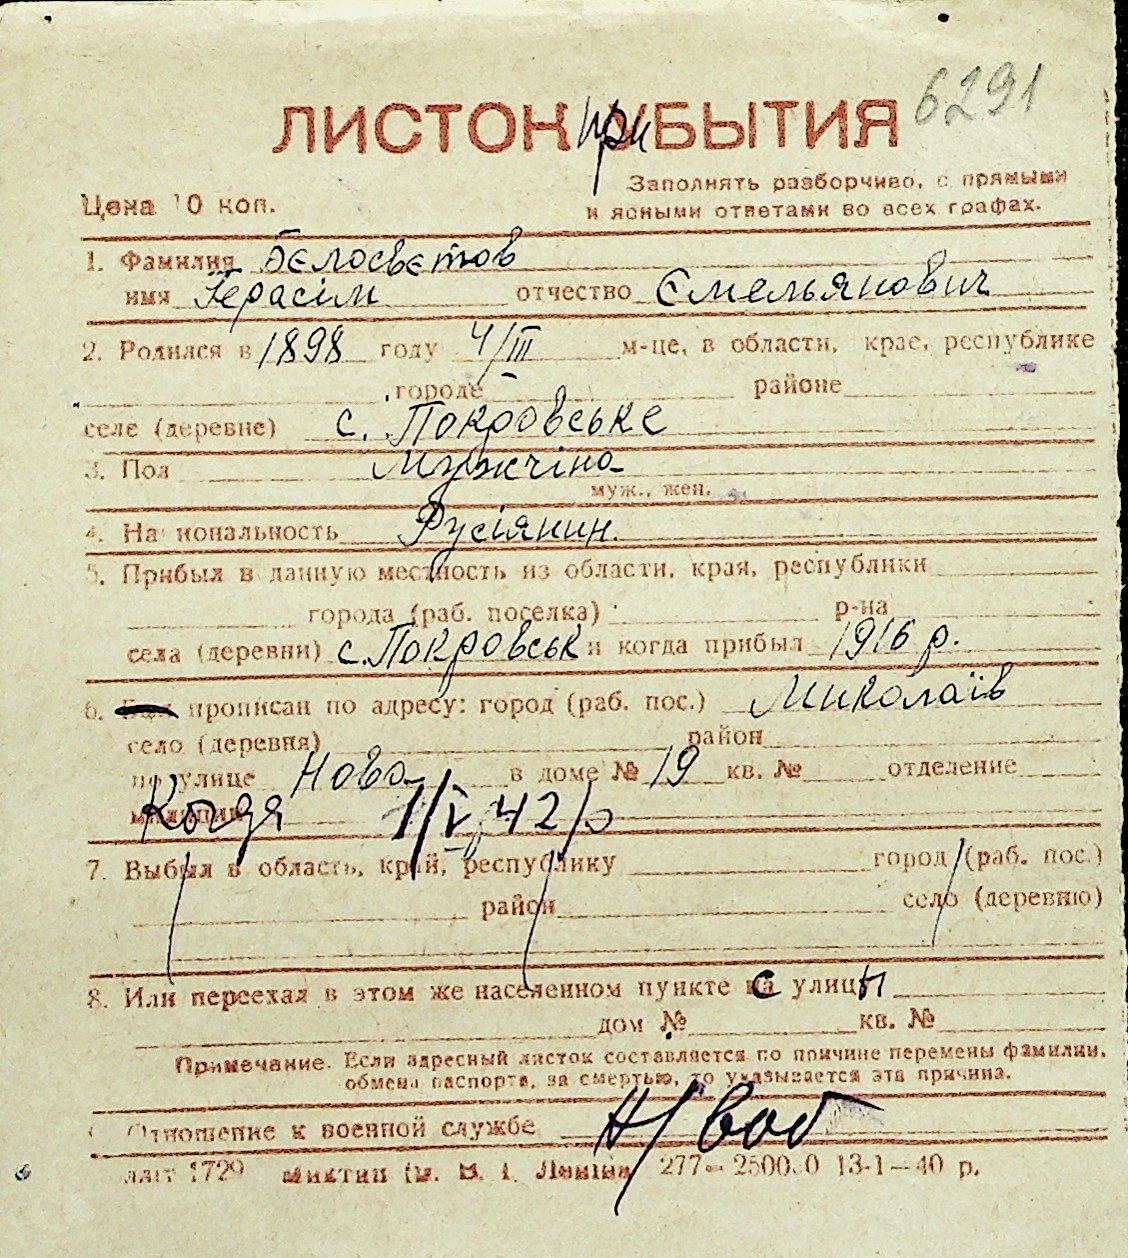 6291
ЛИСТОК при БЫТИЯ
Заполнять разборчиво, с прямыми
Цена 10 коп.
и ясными ответами во всех графах.
1. Фамилия Бєлосвєтов
имя Герасім отчество Ємельянович
2. Родился в 1898 году 4/III м-це, в области, крае, республике
городе районе
селе (деревне) с. Покровське
3. Пол Мужчіна
муж., жен.
4. Национальность Русіянин.
5. Прибыл в данную местность из области, края, республики
города (раб. поселка) р-на
села (деревни) с. Покровськ и когда прибыл 1916 р.
6. прописан по адресу: город (раб. пос.) Миколаїв
село (деревня) район
по улице Нова в доме № 19 кв. № отделение
милиции Когда 1/V 42/
7. Выбыл в область, край, республику город (раб. пос.)
район село (деревню)
8. Или переехал в этом же населенном пункте с улицы
дом № кв. №
Примечание. Если адресный листок составляется по причине перемены фамилии,
обмена паспорта, за смертью, то указывается эта причина.
Отношение к военной службе Н/воб
1729 277— 250000 13-1—40 р.